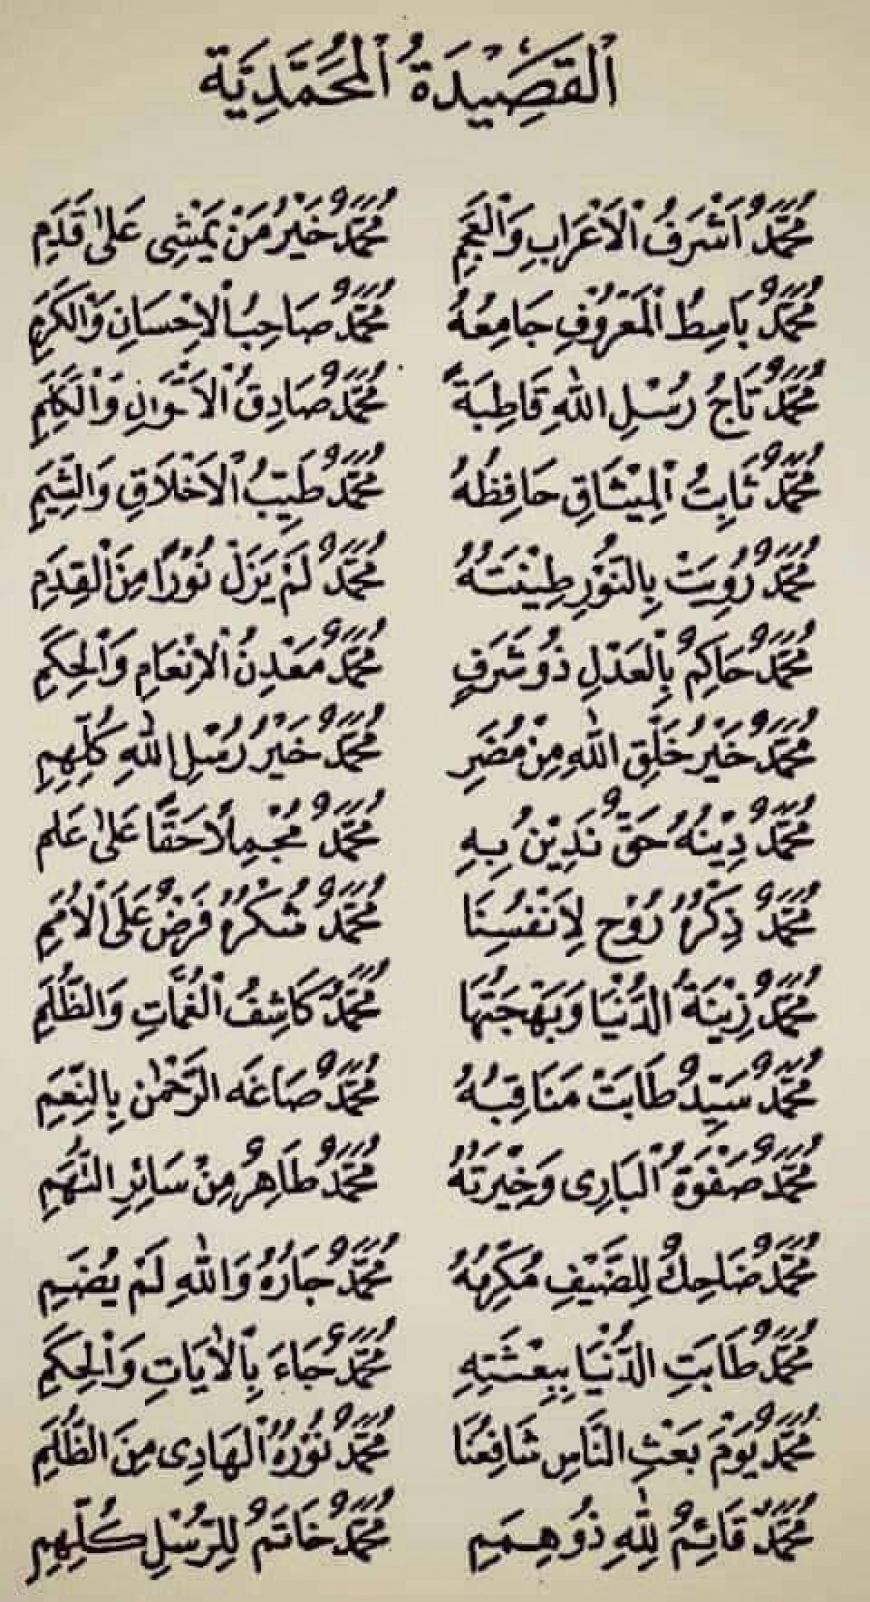 اَلْقَصِيْدَةُ الْمُحَمَّدِيَّة
مُحَمَّدٌ اَشْرَفُ الْاَعْرَابِ وَالْعَجَمِ مُحَمَّدٌ خَيْرُ مَنْ يَمْشِى عَلىٰ قَدَمِ
مُحَمَّدٌ بَاسِطُ الْمَعْرُوْفِ جَامِعُهُ مُحَمَّدٌ صَاحِبُ الْاِحْسَانِ وَالْكَرَمِ
مُحَمَّدٌ تَاجُ رُسْلِ اللهِ قَاطِبَةً مُحَمَّدٌ صَادِقُ الْاَقْوَالِ وَالْكَلِمِ
مُحَمَّدٌ ثَابِتُ الْمِيْثَاقِ حَافِظُهُ مُحَمَّدٌ طَيِّبُ الْاَخْلَاقِ وَالشِّيَمِ
مُحَمَّدٌ رُوِيَتْ بِالنُّوْرِ طِيْنَتُهُ مُحَمَّدٌ لَمْ يَزَلْ نُوْرًا مِنَ الْقِدَمِ
مُحَمَّدٌ حَاكِمٌ بِالْعَدْلِ ذُوْ شَرَفٍ مُحَمَّدٌ مَعْدِنُ الْاِنْعَامِ وَالْحِكَمِ
مُحَمَّدٌ خَيْرُ خَلْقِ اللهِ مِنْ مُضَرِ مُحَمَّدٌ خَيْرُ رُسْلِ اللهِ كُلِّهِمِ
مُحَمَّدٌ دِيْنُهُ حَقٌّ نَدِيْنُ بِهِ مُحَمَّدٌ مُجْمِلًا حَقًّا عَلىٰ عَلم
مُحَمَّدٌ ذِكْرُهُ رُوْح لِاَنْفُسِنَا مُحَمَّدٌ شُكْرُهُ فَرْضٌ عَلَى الْاُمَمِ
مُحَمَّدٌ زِيْنَةُ الدُّنْيَا وَبَهْجَتُهَا مُحَمَّدٌ كَاشِفُ الْغُمَّاتِ وَالظُّلَمِ
مُحَمَّدٌ سَيِّدٌ طَابَتْ مَنَاقِبُهُ مُحَمَّدٌ صَاغَه الرَّحْمٰن بِالنِّعَمِ
مُحَمَّدٌ صَفْوَةُ الْبَارِى وَخِيْرَتُهُ مُحَمَّدٌ طَاهِرٌ مِنْ سَائِرِ التُّهَمِ
مُحَمَّدٌ ضَاحِكٌ لِلضَّيْفِ مُكَرِّمُهُ مُحَمَّدٌ جَارُهُ وَاللهِ لَمْ يُضَمِ
مُحَمَّدٌ طَابَتِ الدُّنْيَا بِبِعْثَتِهِ مُحَمَّدٌ جَاءَ بِالْاٰيَاتِ وَالْحِكَمِ
مُحَمَّدٌ يَوْمَ بَعْثِ النَّاسِ شَافِعُنَا مُحَمَّدٌ نُوْرُهُ الْهَادِى مِنَ الظُّلَمِ
مُحَمَّدٌ قَائِمٌ لِلّٰهِ ذُوْ هِمَمِ مُحَمَّدٌ خَاتَمٌ لِلرُّسْلِ كُلِّهِمِ